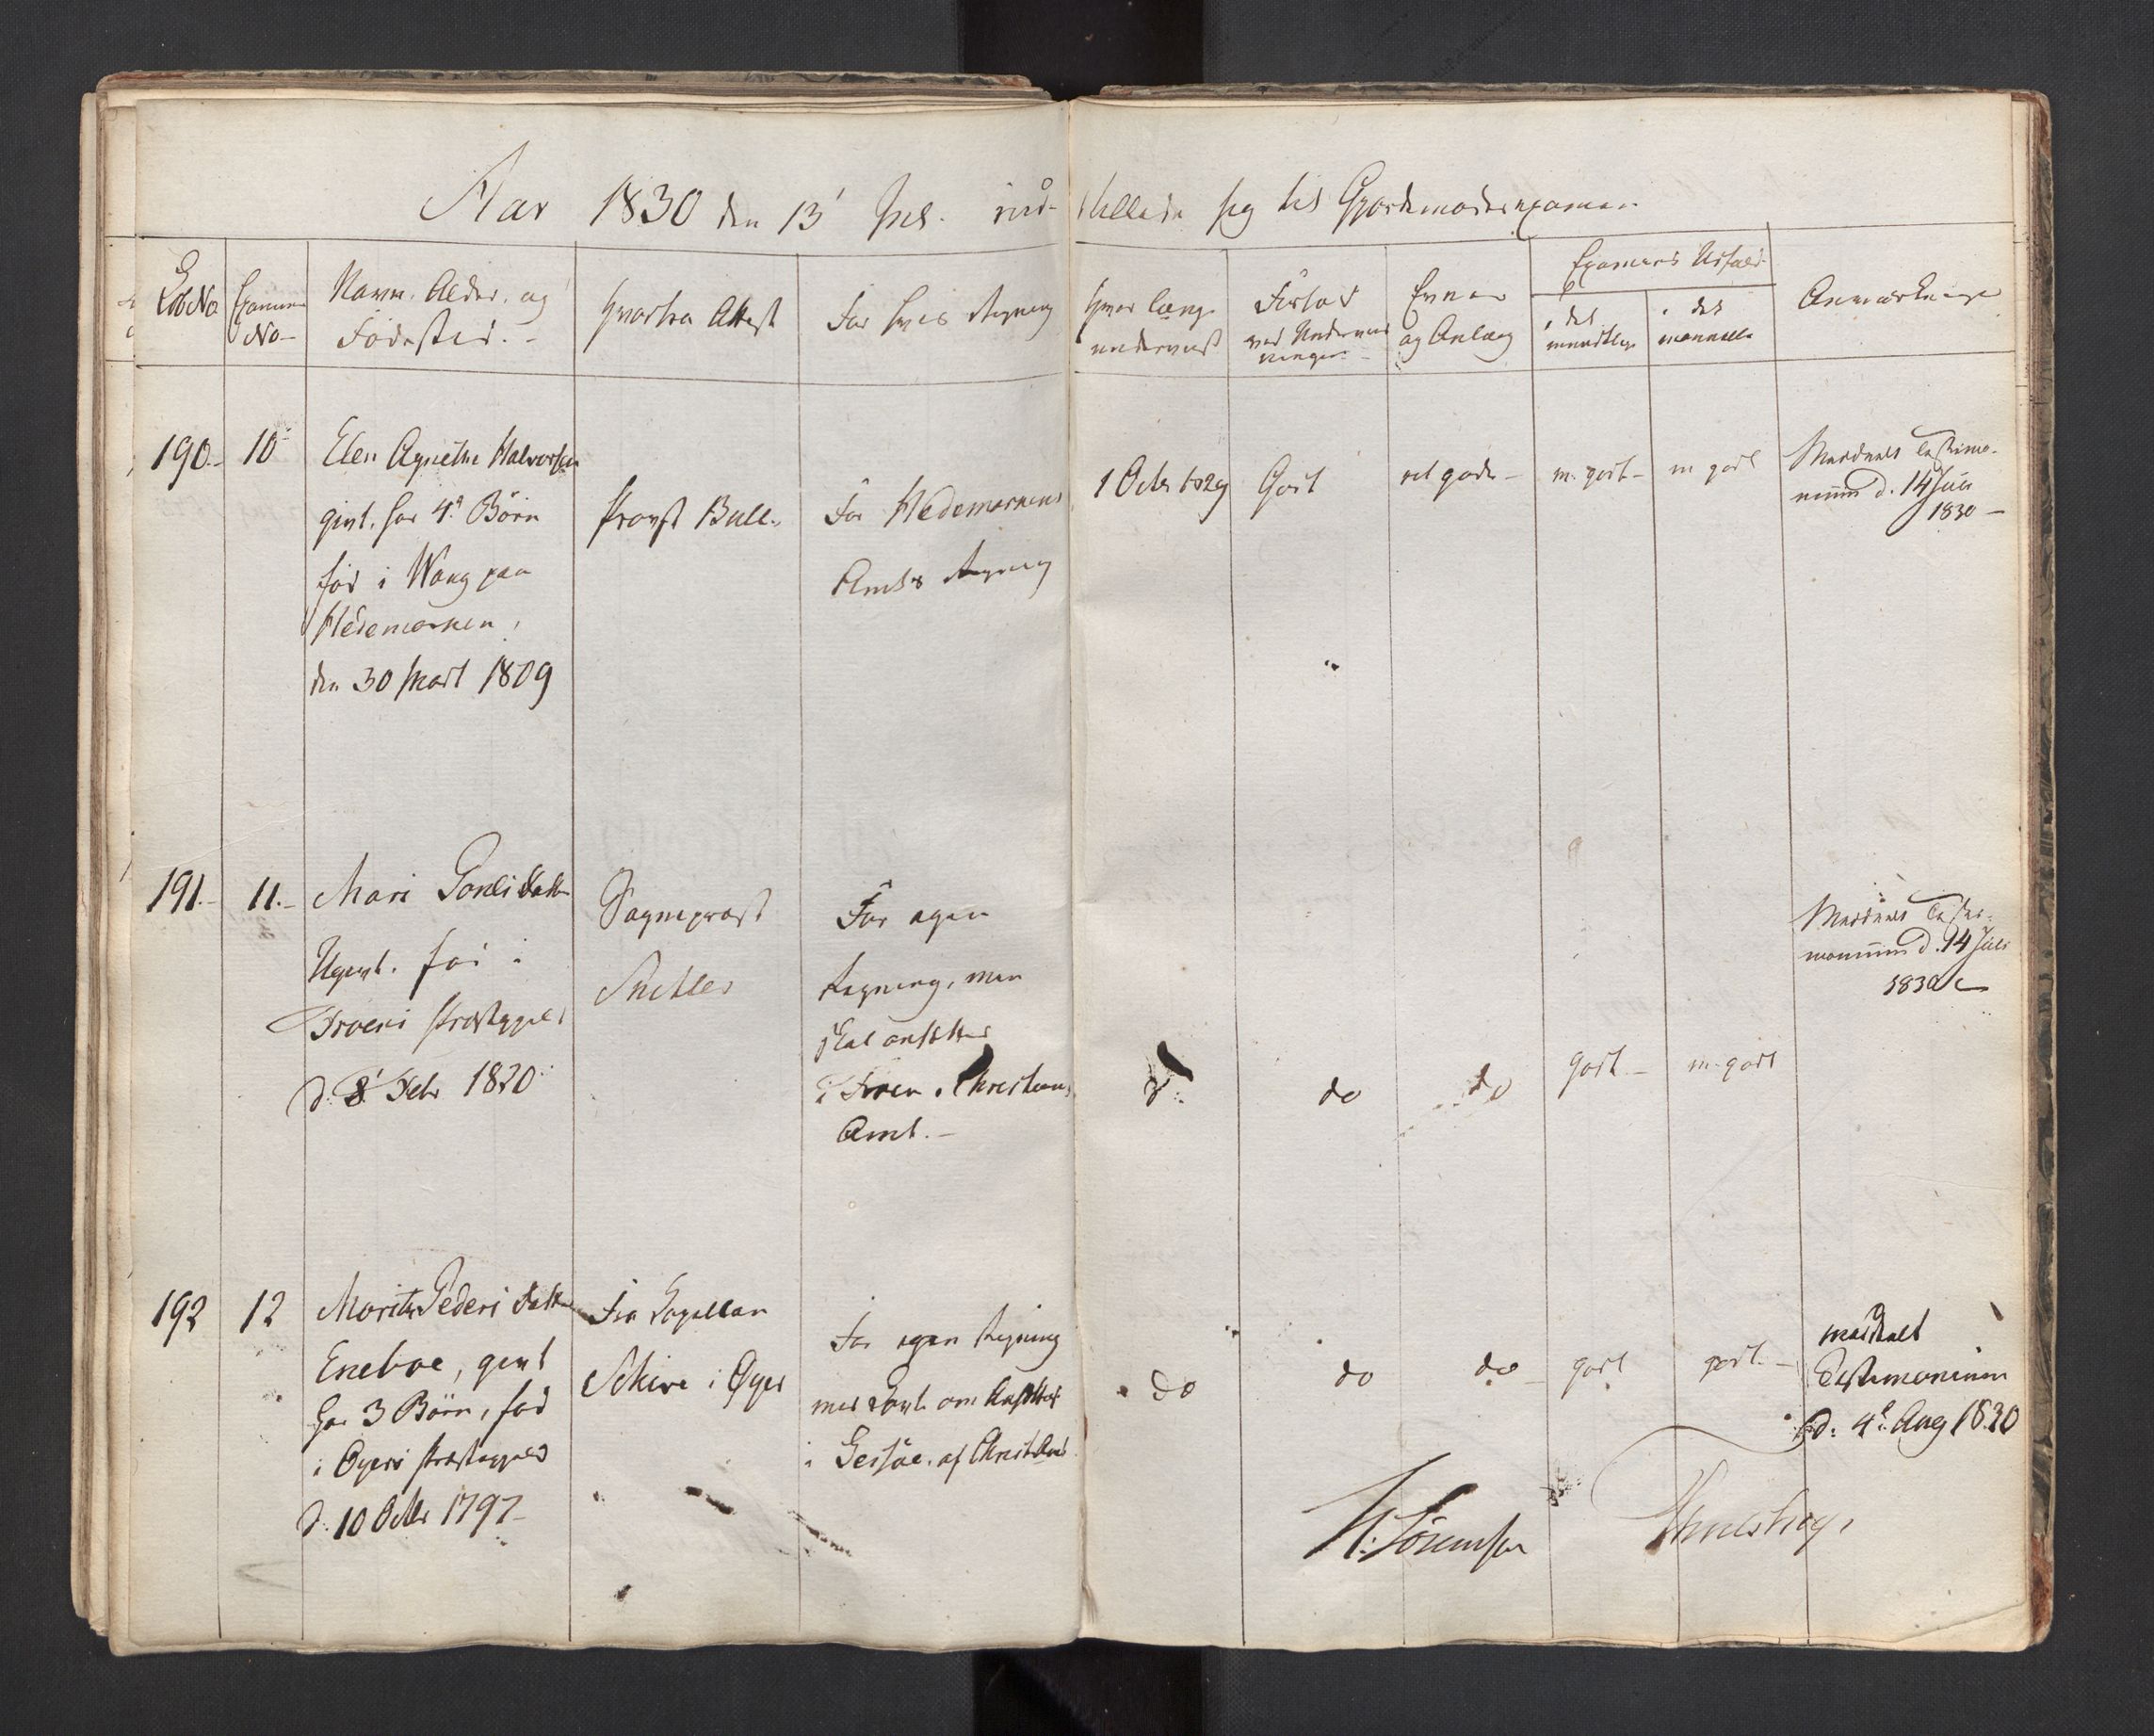 Aar 1830 den 13' Juli ind-stillede sig til Gjordemoderexamen
Løb No
Examens No
Navn, Alder, og
Fødested.
Hvorfra Attest
For hvis Regning
Hvor længe
undervist
Forhold
ved Underviis
ningen
Evner
og Anlæg
Examens Udfald
i det
mundtlige
i det
manuelle
Anmærkninger
190. 10
Elen Agnethe Halvorsen
givt. har 4 Børn
fød i Wang paa
Hedemarken,
den 30 Mart 1809
Provst Bull.
For Hedemarkens
Amts Regning
1 Octr 1829
Godt
ret gode
m. godt
m godt
Meddeelt Testimo-
nium d. 14 Juli
1830
191. 11.
Mari Poulsdatter
Ugivt. fød i
Froens Præstegjeld
d. 8' Febr 1820
Sogneprest
For egen
Regning, men
skal ansættes
i Froen i Christians
Amt.
do
do
godt
m. godt
Meddeelt Testi-
monium d. 14 Juli
1830
192 12
Marithe Peders datter
Eneboe, givt
har 3 Børn, fød
i Øyers Præstegjeld
d. 10 Octbr 1797
Fra Capellan
i Øyer
For egen Regning
med Løvte om Ansættelse
i af Christ Amt
do
do
do
godt
godt
meddeelt
Testimonium
d. 4 Aug 1830
N. Sörenssen
Thulstrup